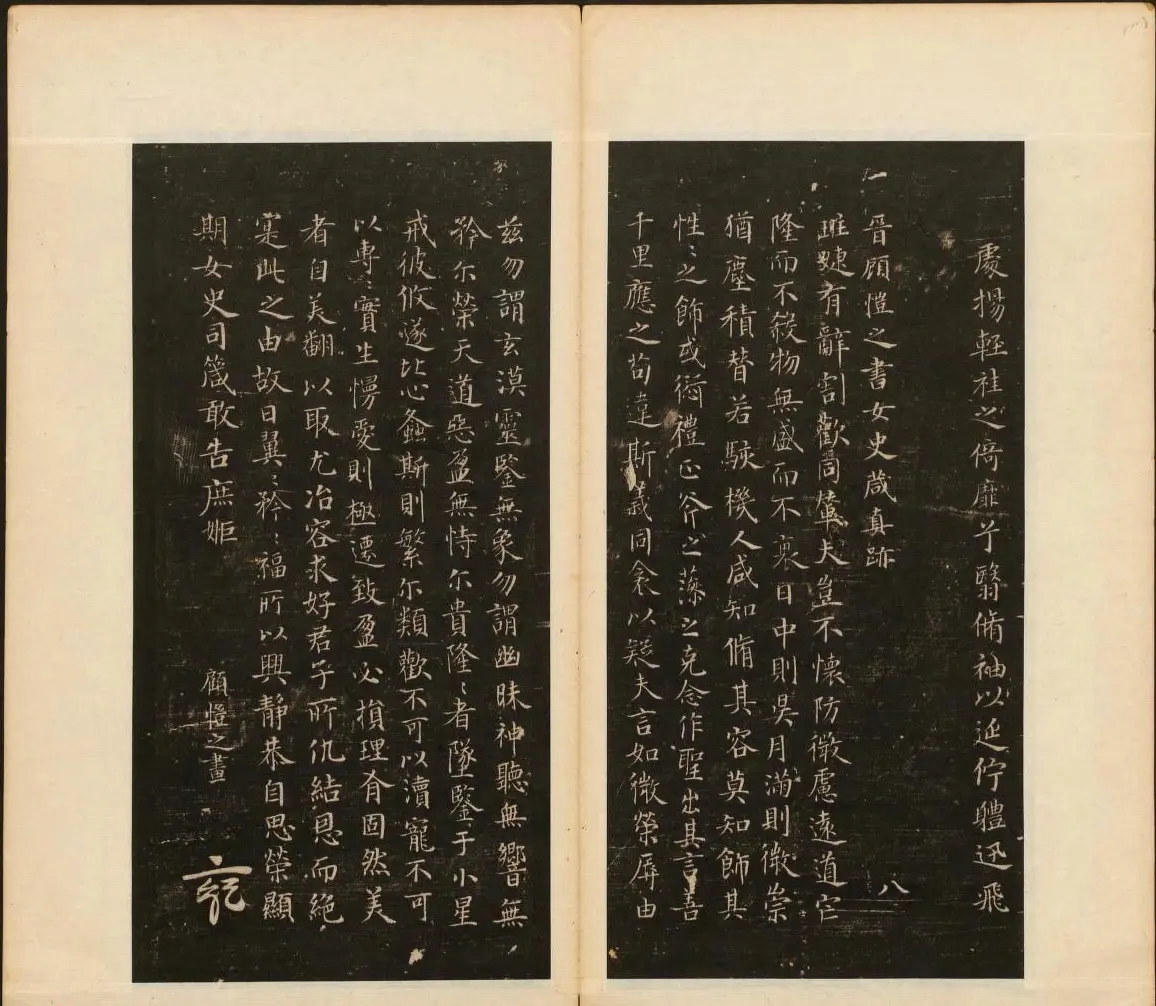 處揚輕袿之倚靡兮翳脩袖以延佇體迅飛
晉顧愷之書女史箴真跡
班婕有辭割歡同輦夫豈不懷防微慮遠道它
隆而不殺物無盛而不衰日中則昃月滿則微崇
猶塵積替若駭機人咸知脩其容莫知飾其
性〻之飾或愆禮正斧之藻之克念作聖出其言善
千里應之苟違斯義同衾以疑夫言如微榮辱由
八
茲勿謂玄漠靈鑒無象勿謂幽昧神聽無響無
矜尔榮天道惡盈無恃尔貴隆〻者墜鑒于小星
戒彼攸遂比心螽斯則繁尔類歡不可以瀆寵不可
以專〻實生慢愛則極遷致盈必損理有固然美
者自美翻以取尤冶容求好君子所仇結恩而絕
寔此之由故曰翼〻矜〻福所以興靜恭自思榮顯
期女史司箴敢告庶姬
顧愷之畫